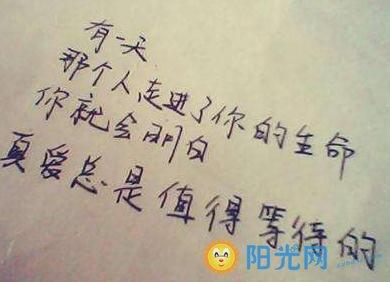 有一天
那个人走进了你的生命
你就会明白
真爱总是值得等待的
阳光网